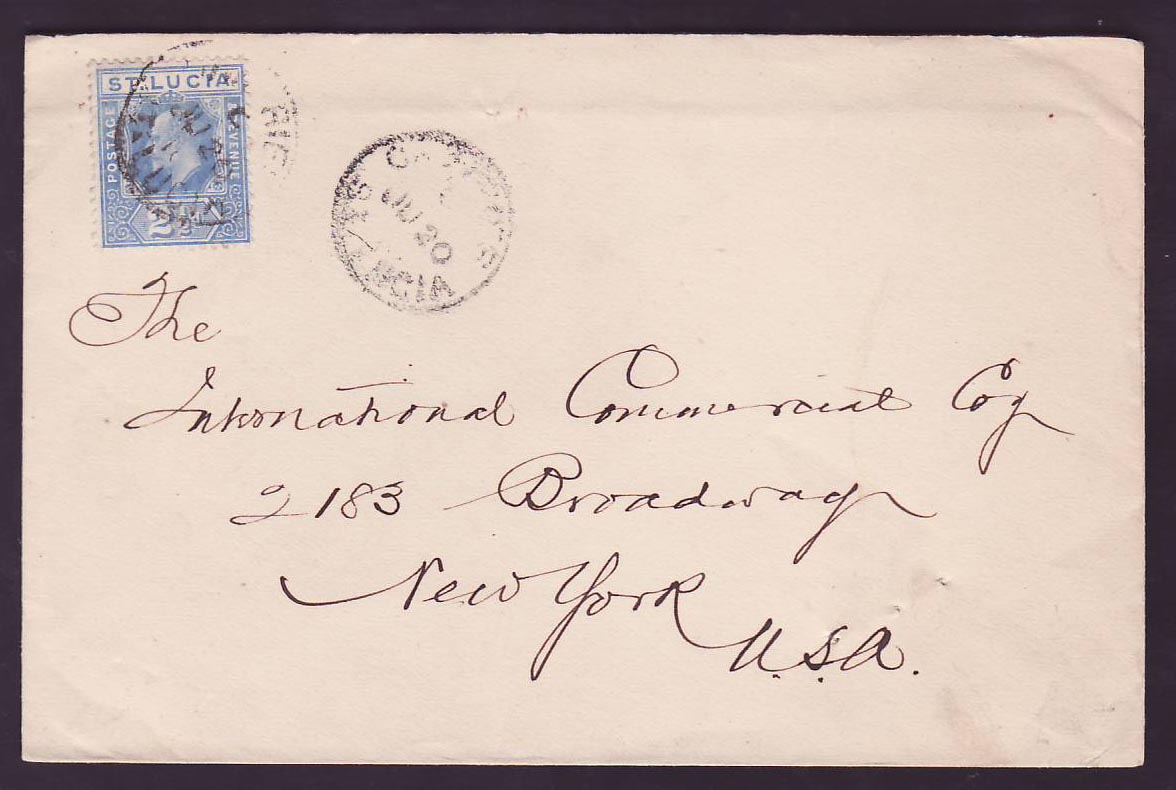 ST. LUCIA
POSTAGE
REVENUE
2½
CASTRIES
C
JU 20
ST LUCIA
The
International Commercial Coy
2183 Broadway
New York
U.S.A.